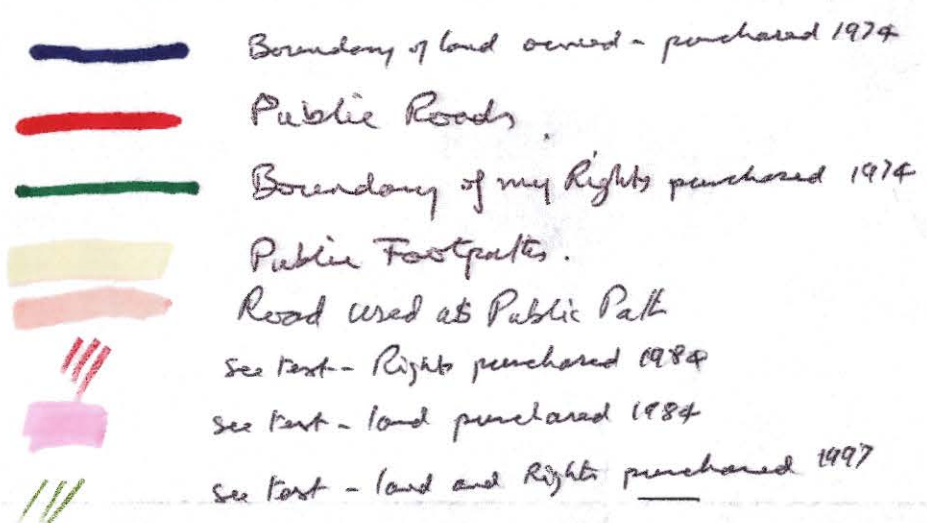 Boundary of land owned - purchased 1974
Public Roads.
Boundary of my Rights purchased 1974
Public Footpaths.
Road used as Public Path
See text - Rights purchased 1984
See text - land purchased 1984
See text - land and Rights purchased 1997